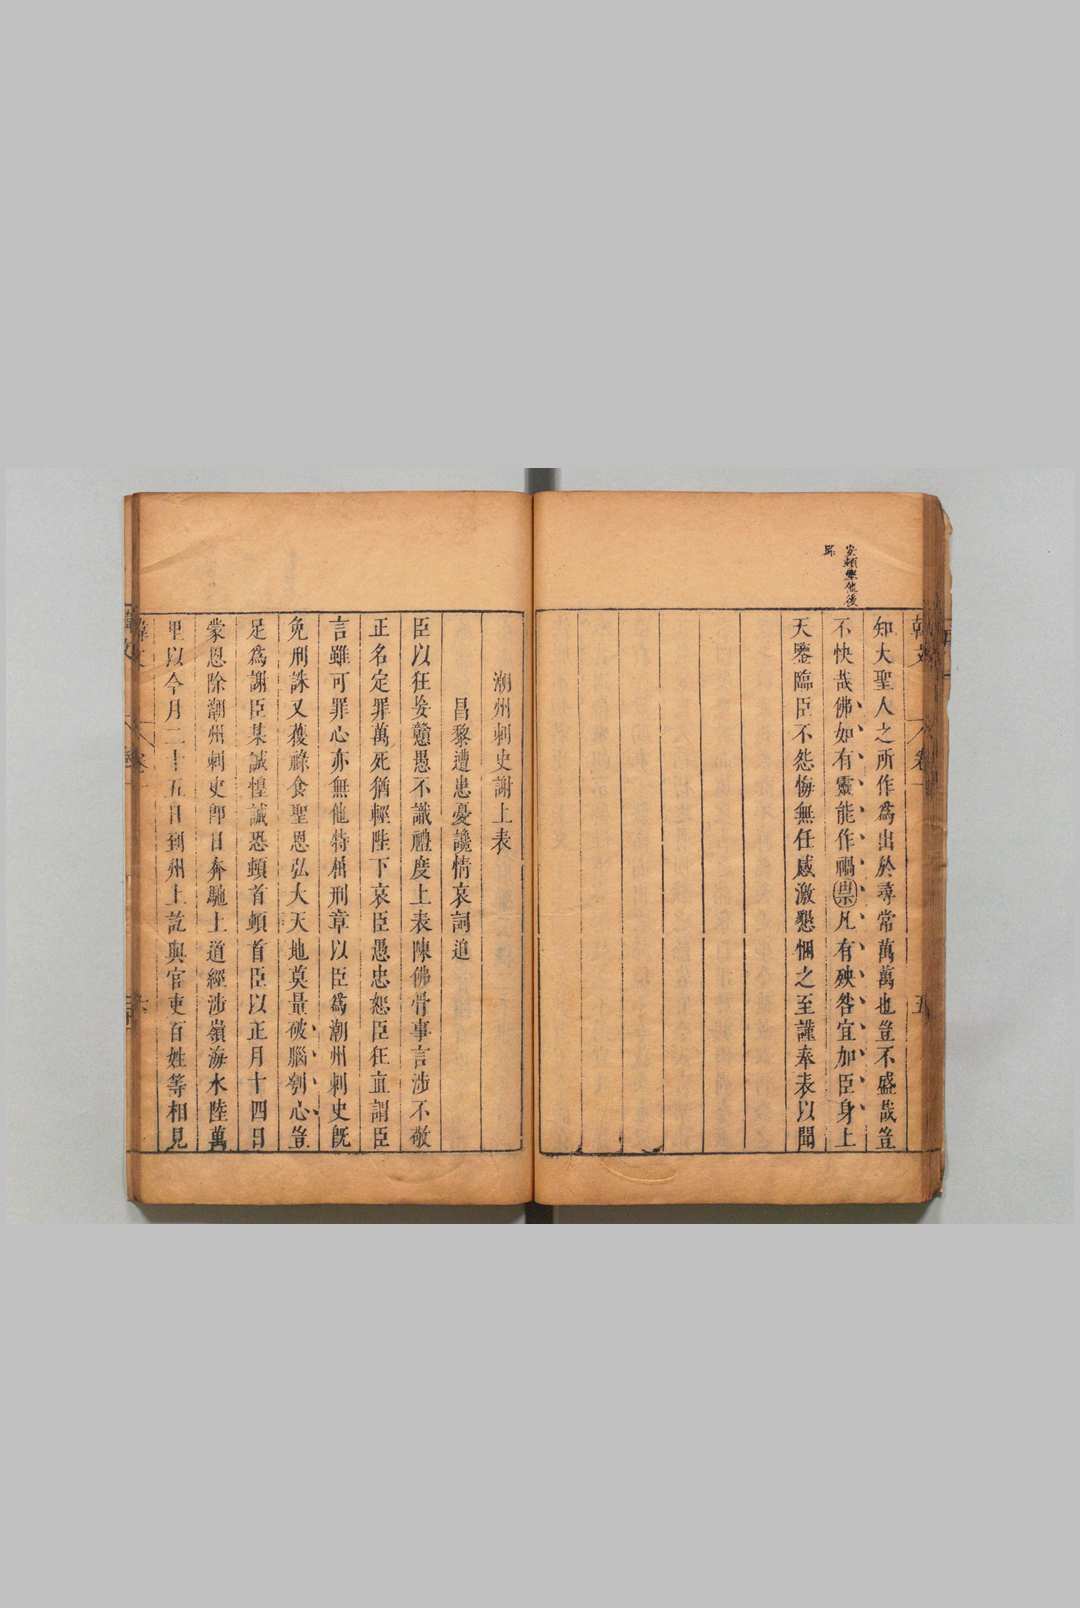 知大聖人之所作為出於尋常萬萬也豈不盛哉豈
不快哉佛如有靈能作禍祟凡有殃咎宜加臣身上
天鑒臨臣不怨悔無任感激懇悃之至謹奉表以聞
潮州刺史謝上表
昌黎遭患憂讒情哀詞追
臣以狂妄戇愚不識禮度上表陳佛骨事言涉不敬
正名定罪萬死猶輕陛下哀臣愚忠恕臣狂直謂臣
言雖可罪心亦無他特屈刑章以臣為潮州刺史既
免刑誅又獲祿食聖恩弘大天地莫量破腦刳心豈
足為謝臣某誠惶誠恐頓首頓首臣以正月十四日
蒙恩除潮州刺史即日奔馳上道經涉嶺海水陸萬
里以今月二十五日到州上訖與官吏百姓等相見